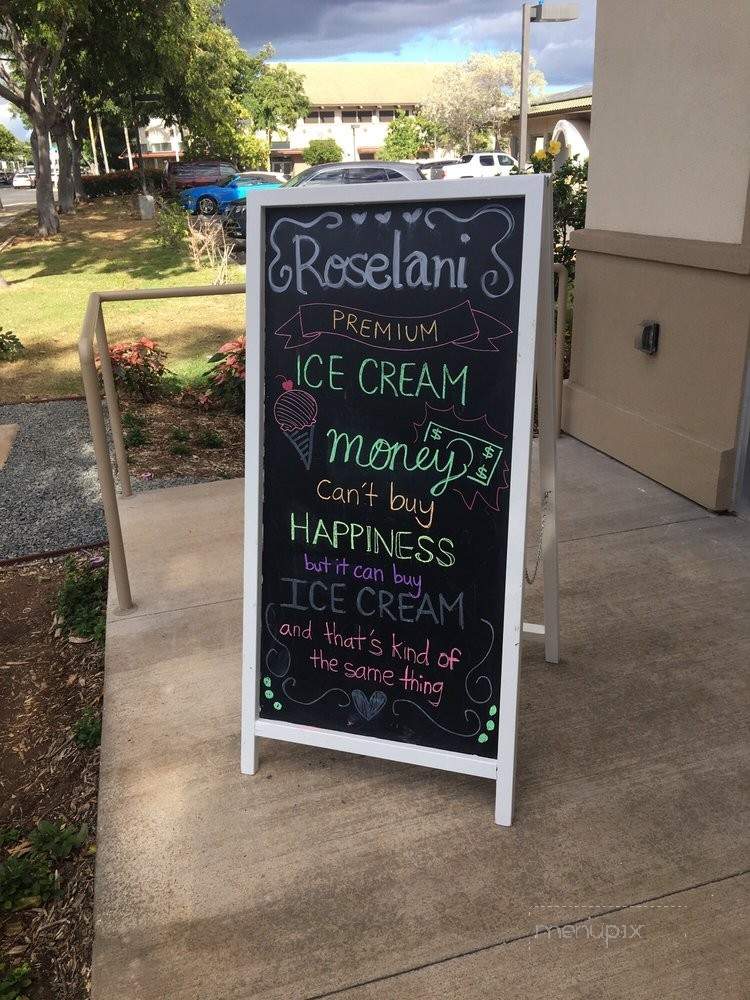 Roselani
PREMIUM
ICE CREAM
money
$ $ $
Can't buy
HAPPINESS
but it can buy
ICE CREAM
and that's kind of
the same thing
menupix